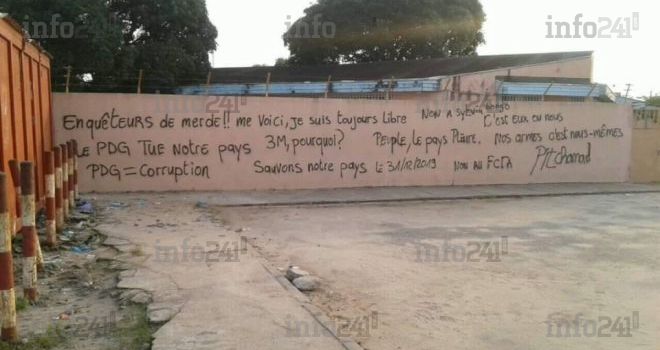 Enquêteurs de merde!! me voici, je suis toujours libre
Non à Sylvia Bongo
C'est eux ou nous
Le PDG tue notre pays 3M, pourquoi? Peuple, le pays pleure. Nos armes c'est nous-mêmes
PDG = Corruption Sauvons notre pays le 31/12/2019 Non au FCFA
info241
info241
info241
info241
info241
info241
info241
info241
info241